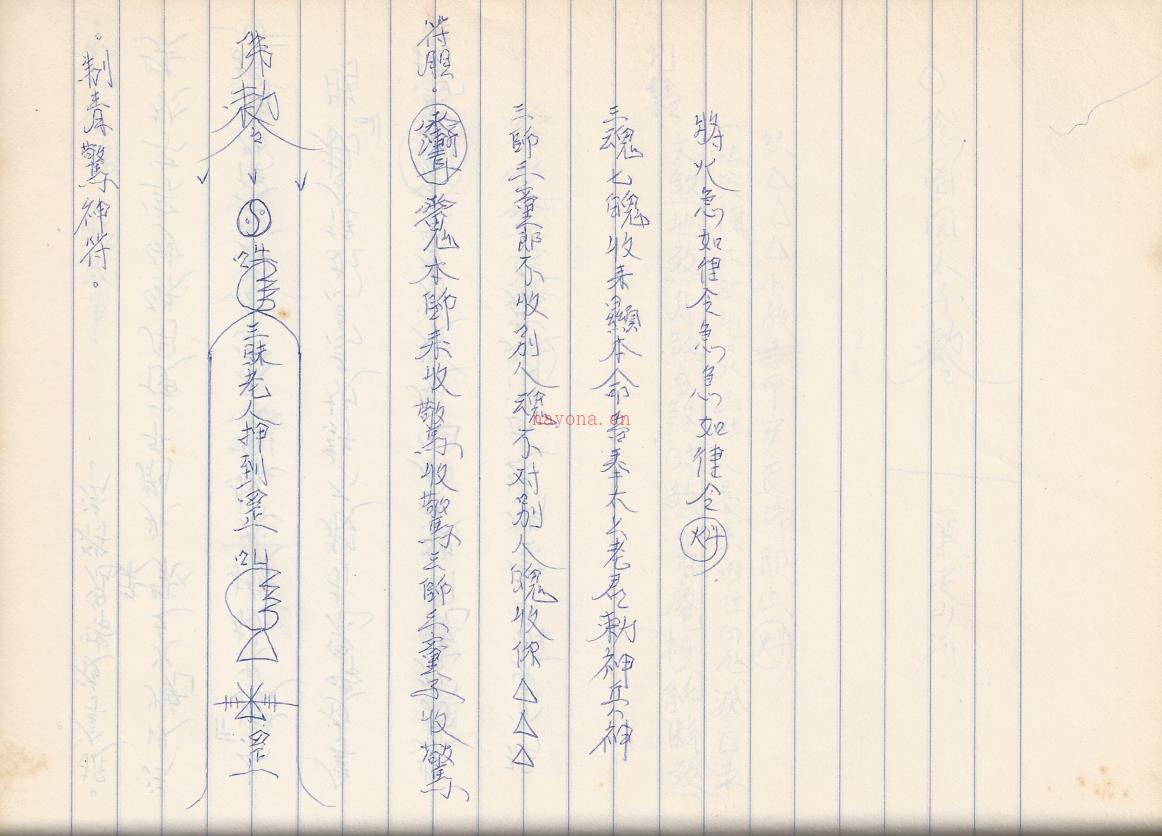 。制青驚神符。
佛勅令
三昧老人押到罡
罡
符胆。
本師來收驚收驚三師三童子收驚
三師三童郎不收別人魂不对別人魄收你△△△
三魂七魄收來歸本命吾奉太上老君勅神兵神
將火急如律令急急如律令
nayona.cn